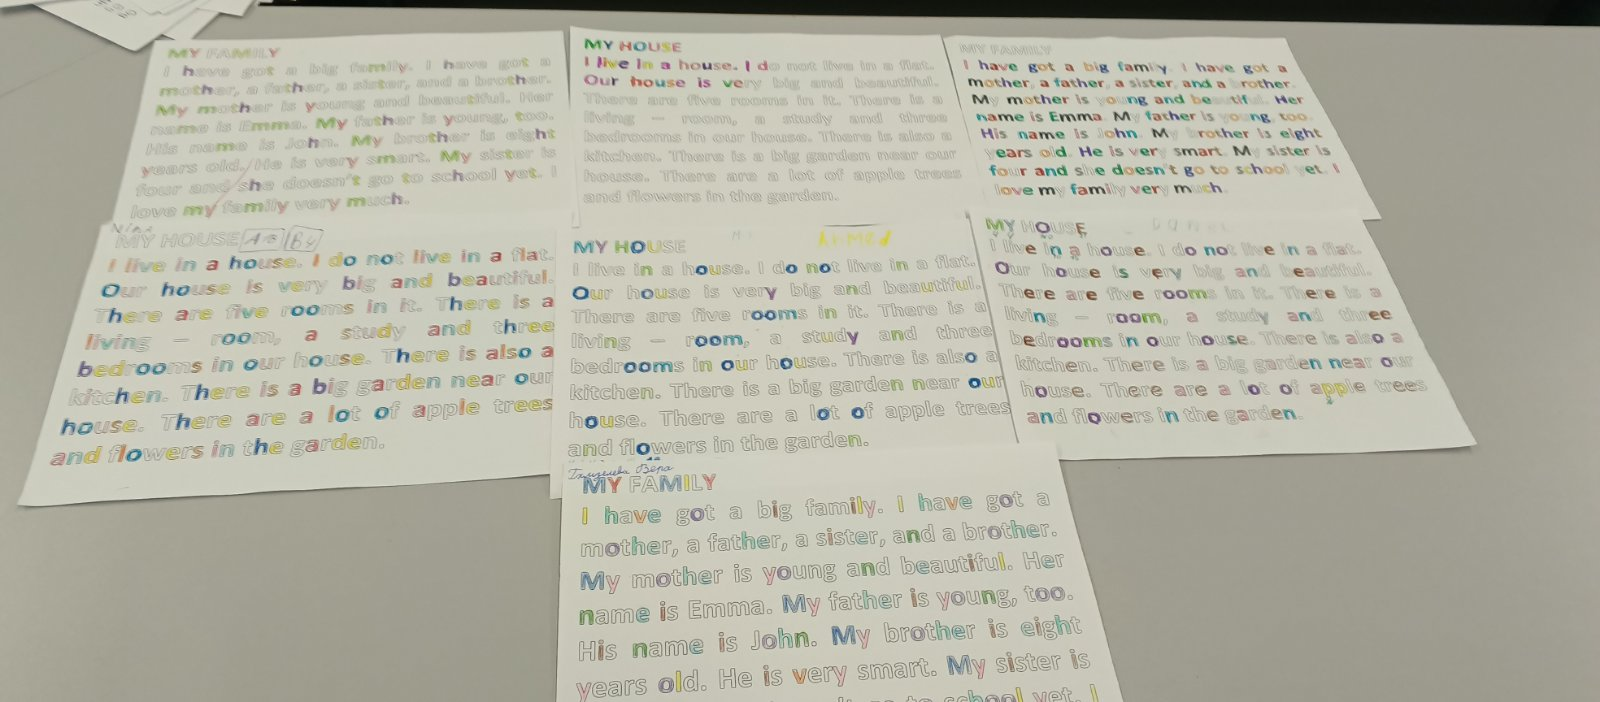 MY FAMILY
I have got a big family. I have got a
mother, a father, a sister, and a brother.
My mother is young and beautiful. Her
name is Emma. My father is young, too.
His name is John. My brother is eight
years old. He is very smart. My sister is
four and she doesn't go to school yet. I
love my family very much.
MY HOUSE
I live in a house. I do not live in a flat.
Our house is very big and beautiful.
There are five rooms in it. There is a
living – room, a study and three
bedrooms in our house. There is also a
kitchen. There is a big garden near our
house. There are a lot of apple trees
and flowers in the garden.
MY FAMILY
I have got a big family. I have got a
mother, a father, a sister, and a brother.
My mother is young and beautiful. Her
name is Emma. My father is young, too.
His name is John. My brother is eight
years old. He is very smart. My sister is
four and she doesn't go to school yet. I
love my family very much.
MY HOUSE
I live in a house. I do not live in a flat.
Our house is very big and beautiful.
There are five rooms in it. There is a
living – room, a study and three
bedrooms in our house. There is also a
kitchen. There is a big garden near our
house. There are a lot of apple trees
and flowers in the garden.
Ahmed
MY HOUSE
I live in a house. I do not live in a flat.
Our house is very big and beautiful.
There are five rooms in it. There is a
living – room, a study and three
bedrooms in our house. There is also a
kitchen. There is a big garden near our
house. There are a lot of apple trees
and flowers in the garden.
MY HOUSE
I live in a house. I do not live in a flat.
Our house is very big and beautiful.
There are five rooms in it. There is a
living – room, a study and three
bedrooms in our house. There is also a
kitchen. There is a big garden near our
house. There are a lot of apple trees
and flowers in the garden.
Вера
MY FAMILY
I have got a big family. I have got a
mother, a father, a sister, and a brother.
My mother is young and beautiful. Her
name is Emma. My father is young, too.
His name is John. My brother is eight
years old. He is very smart. My sister is
school yet. I